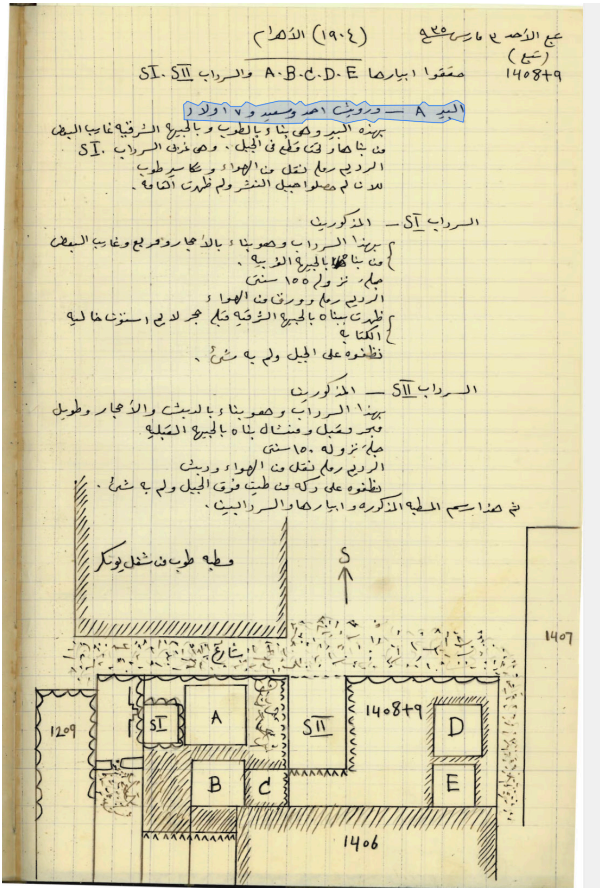 (١٩٠٤) الأهرام
تبع الأحد ٣ مارس سنة ٩٣٥
(تبع)
1408+9 حققوا ابيارها A.B.C.D.E والسرداب SI. SII
البير A — درويش احمد وسعيد و ٧ اولاد
بهذه البير وهى بناء بالطوب وبالجهة الشرقيه غايب البعض
من بناها وفى قطع فى الجبل . وهى غربى السرداب SI.
الرديم رمله نقل من الهواء وتكاسير طوب
للان لم حصلوا جبل النشر ولم ظهرت اهامه .
السرداب SI — المذكورين
بهذا السرداب وهو بناء بالأحجار ومربع وغايب البعض
من بناها بالجهة الغربيه .
جملة نزوله ١٥٥ سنتى
الرديم رمله وورق من الهواء
ظهرت ببناه بالجهة الشرقيه قبله حجر لايم استون خاليه
الكتابه
نظفوه على الجبل ولم به شئ .
السرداب SII — المذكورين
بهذا السرداب وهو بناء بالدبش والأحجار وطويل
مبحر ومقبل بناه بالجهة القبليه
جملة نزوله ١٥٠ سنتى
الرديم رمله نقل من الهواء ودبش
نظفوه على دكه من طين فوق الجبل ولم به شئ .
ثم هذا رسم المصطبه المذكوره وابيارها والسردابين .
مصطبه طوب من شغل يونكر
S
شارع
1407
1209
SI
A
SII
1408+9
D
B
C
E
1406